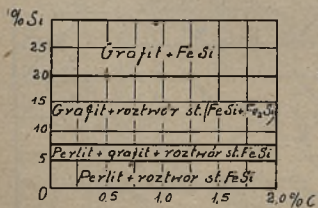 % Si
25
Grafit + FeSi
20
15
Grafit + roztwór st. (FeSi + Fe₂Si)
10
Perlit + grafit + roztwór st. FeSi
5
Perlit + roztwór st. FeSi
0
0.5 1.0 1,5 2,0 % C